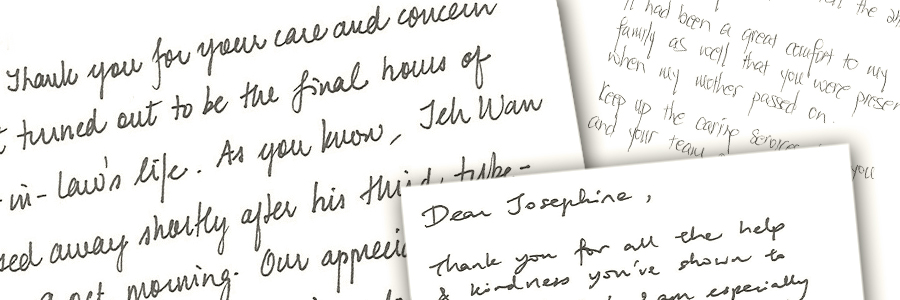 Thank you for your care and concern
turned out to be the final hours of
-in-law's life. As you know, Teh Wan
sed away shortly after his third tube-
morning. Our apprecia
it had been a great comfort to my
family as well that you were presen
when my mother passed on.
Keep up the caring services
and your team
you
Dear Josephine,
Thank you for all the help
& kindness you've shown to
I am especially